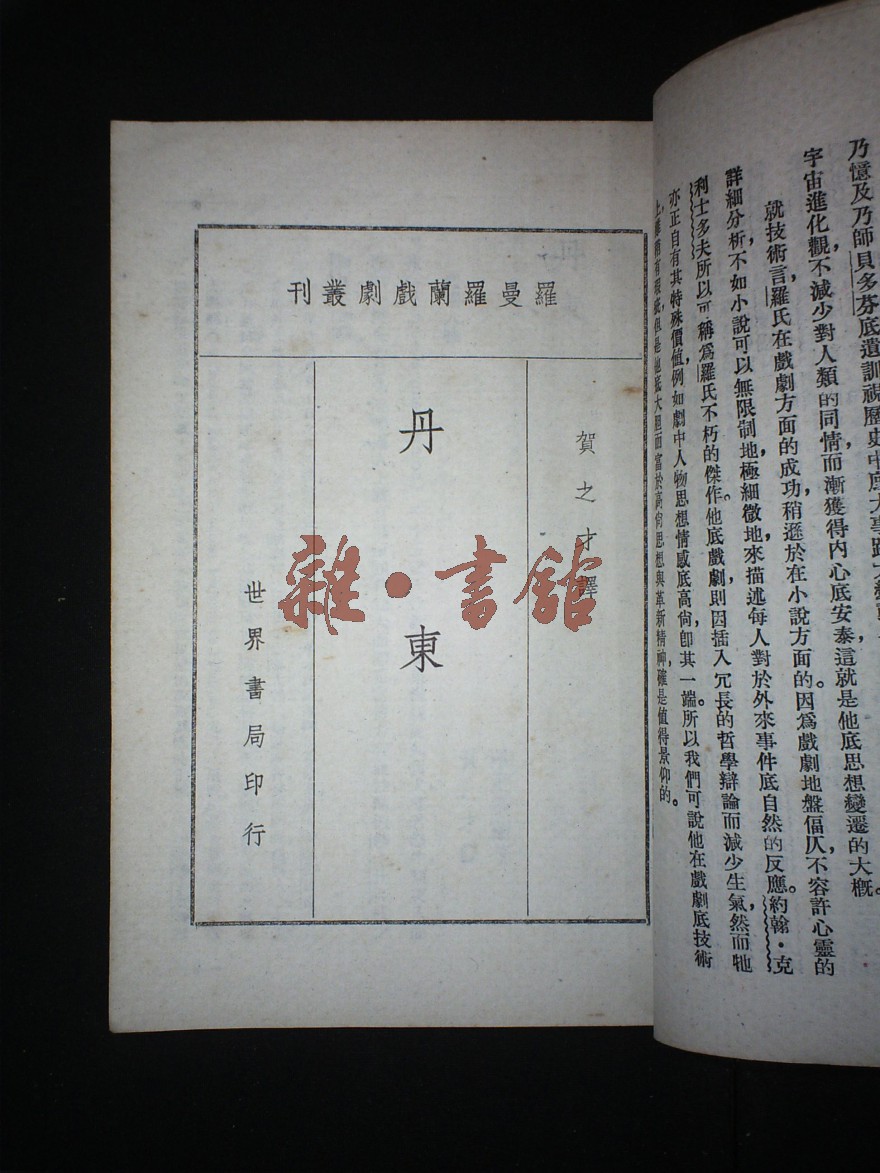 乃憶及乃師貝多芬底遺訓視歷史中底大事
宇宙進化觀，不減少對人類的同情而漸獲得內心底安泰，這就是他底思想變遷的大概。
就技術言，羅氏在戲劇方面的成功稍遜於在小說方面的。因爲戲劇地盤偪仄，不容許心靈的
詳細分析，不如小說可以無限制地極細微地來描述每人對於外來事件底自然的反應。約翰·克
利士多夫所以可稱爲羅氏不朽的傑作。他底戲劇，則因插入冗長的哲學辯論而減少生氣，然而牠
亦正自有其特殊價值，例如劇中人物思想情感底高尙，卽其一端。所以我們可說他在戲劇底技術
上雖稍有瑕疵，但是他底大胆而富於高尙思想與革新精神，確是值得景仰的。
羅曼羅蘭戲劇叢刊
賀之才譯
丹東
世界書局印行
雜·書館